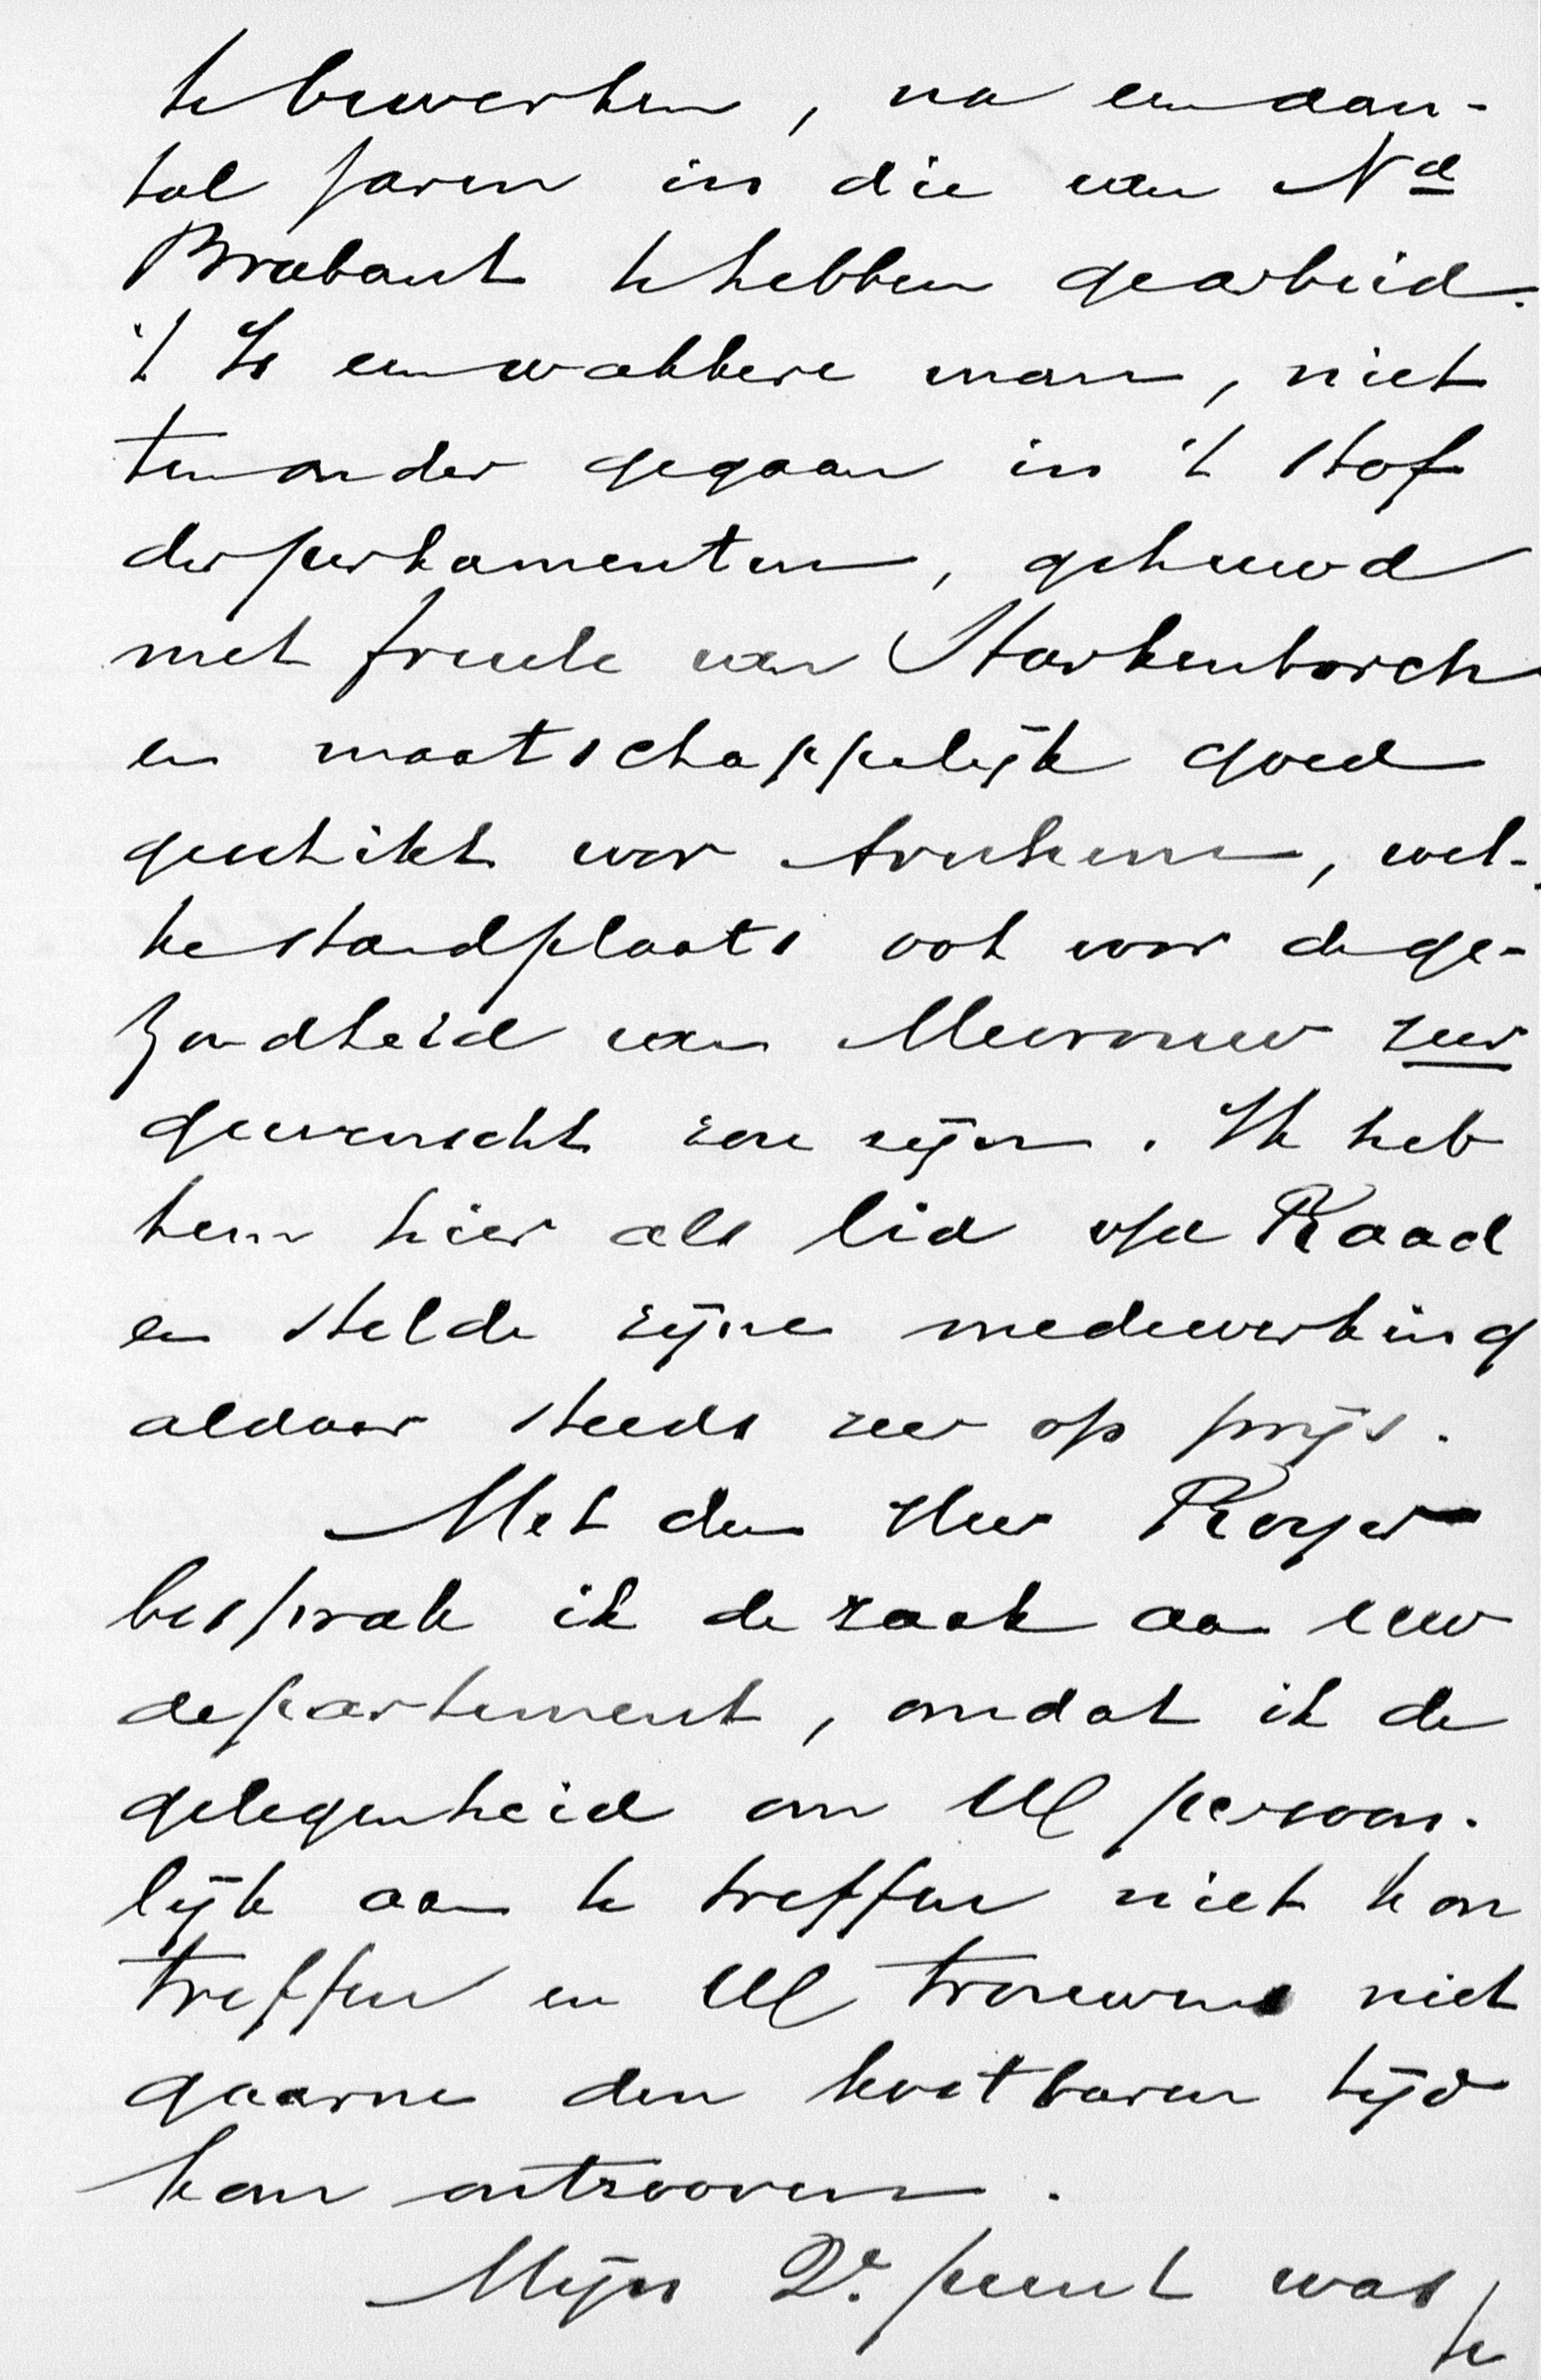 te bewerken, na een aan-
tal jaren in die van Nd
Brabant te hebben gearbeid.
't Is een wakkere man, niet
ten onder gegaan in 't stof
der perkamenten, gehuwd
met freule van Starkenborch
en maatschappelijk goed
geschikt voor Arnhem, wel-
ke standplaats ook voor de ge-
zondheid van Mevrouw zeer
gewenscht zou zijn. Ik heb
hem hier als lid v/d Raad
en stelde zijne medewerking
aldaar steeds zeer op prijs.
Met den Heer Royer
besprak ik de zaak aan uw
departement, omdat ik de
gelegenheid om UE persoon-
lijk aan te treffen niet kon
treffen en UE trouwens niet
gaarne den kostbaren tijd
kan ontrooven.
Mijn 2e punt was
te